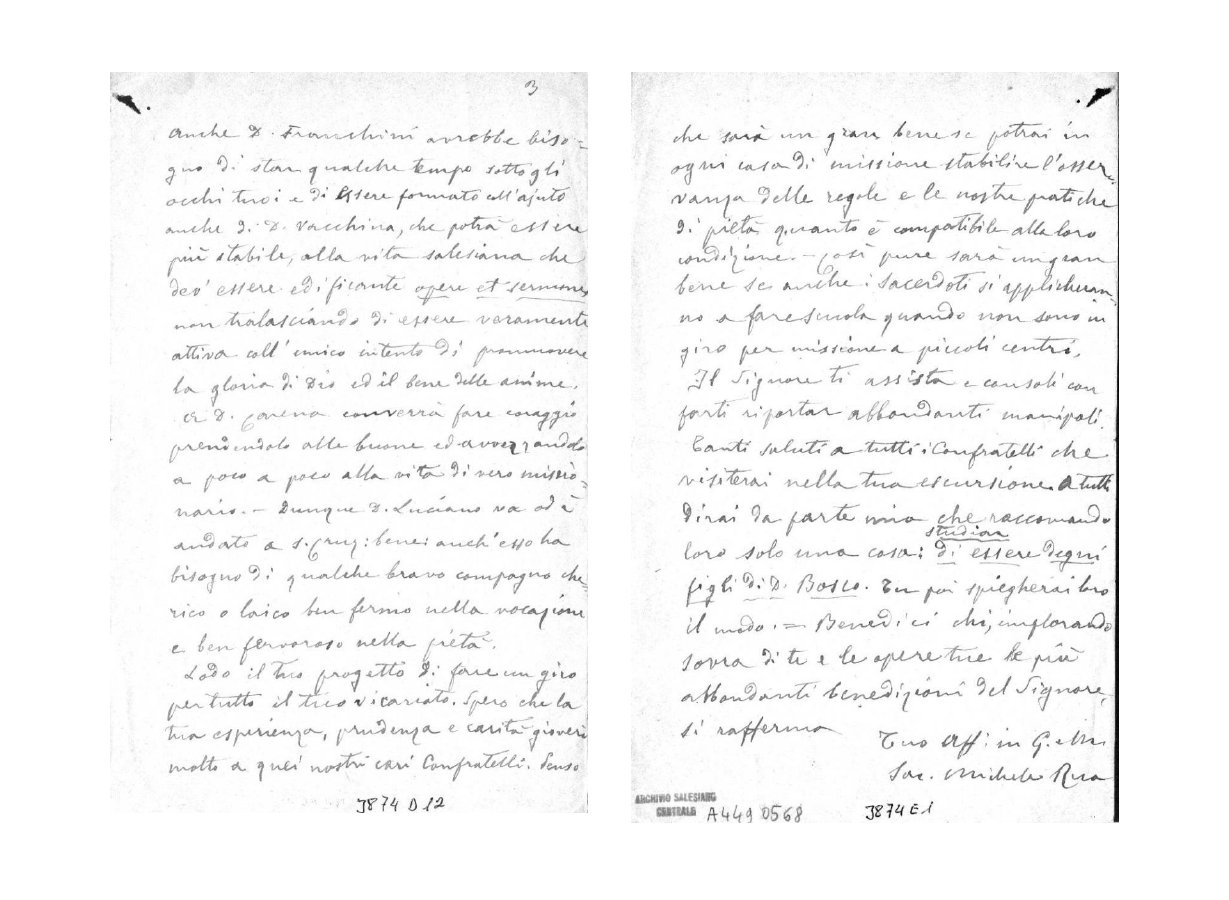 3
anche D. Franchini avrebbe biso=
gno di star qualche tempo sotto gli
occhi tuoi e di essere formato coll'ajuto
anche di D. Vacchina, che potrà essere
più stabile, alla vita salesiana che
dev'essere edificante opere et sermone,
non tralasciando di essere veramente
attiva coll'unico intento di promuovere
la gloria di Dio ed il bene delle anime.
A D. Carena converrà fare coraggio
prendendolo alle buone ed avvezzandolo
a poco a poco alla vita di vero missio=
nario. — Dunque D. Luciano va od è
andato a S. Cruz: bene: anch'esso ha
bisogno di qualche bravo compagno che=
rico o laico ben fermo nella vocazione
e ben fervoroso nella pietà.
Lodo il tuo progetto di fare un giro
per tutto il tuo vicariato. Spero che la
tua esperienza, prudenza e carità gioverà
molto a quei nostri cari Confratelli. Penso
J874 D 12
che sarà un gran bene se potrai in
ogni casa di missione stabilire l'osser=
vanza delle regole e le nostre pratiche
di pietà quanto è compatibile alla loro
condizione. — Così pure sarà un gran
bene se anche i sacerdoti si applicheran=
no a fare scuola quando non sono in
giro per missione a piccoli centri.
Il Signore ti assista e consoli con
farti riportar abbondanti manipoli.
Tanti saluti a tutti i Confratelli che
visiterai nella tua escursione. A tutti
dirai da parte mia che raccomando
studiar
loro solo una cosa: di essere degni
figli di D. Bosco. Tu poi spiegherai loro
il modo. = Benedici chi, implorando
sovra di te e le opere tue le più
abbondanti benedizioni del Signore,
si rafferma
Tuo Aff: in G. e M.
Sac. Michele Rua
ARCHIVIO SALESIANO
CENTRALE
A449 0568
J874 E1